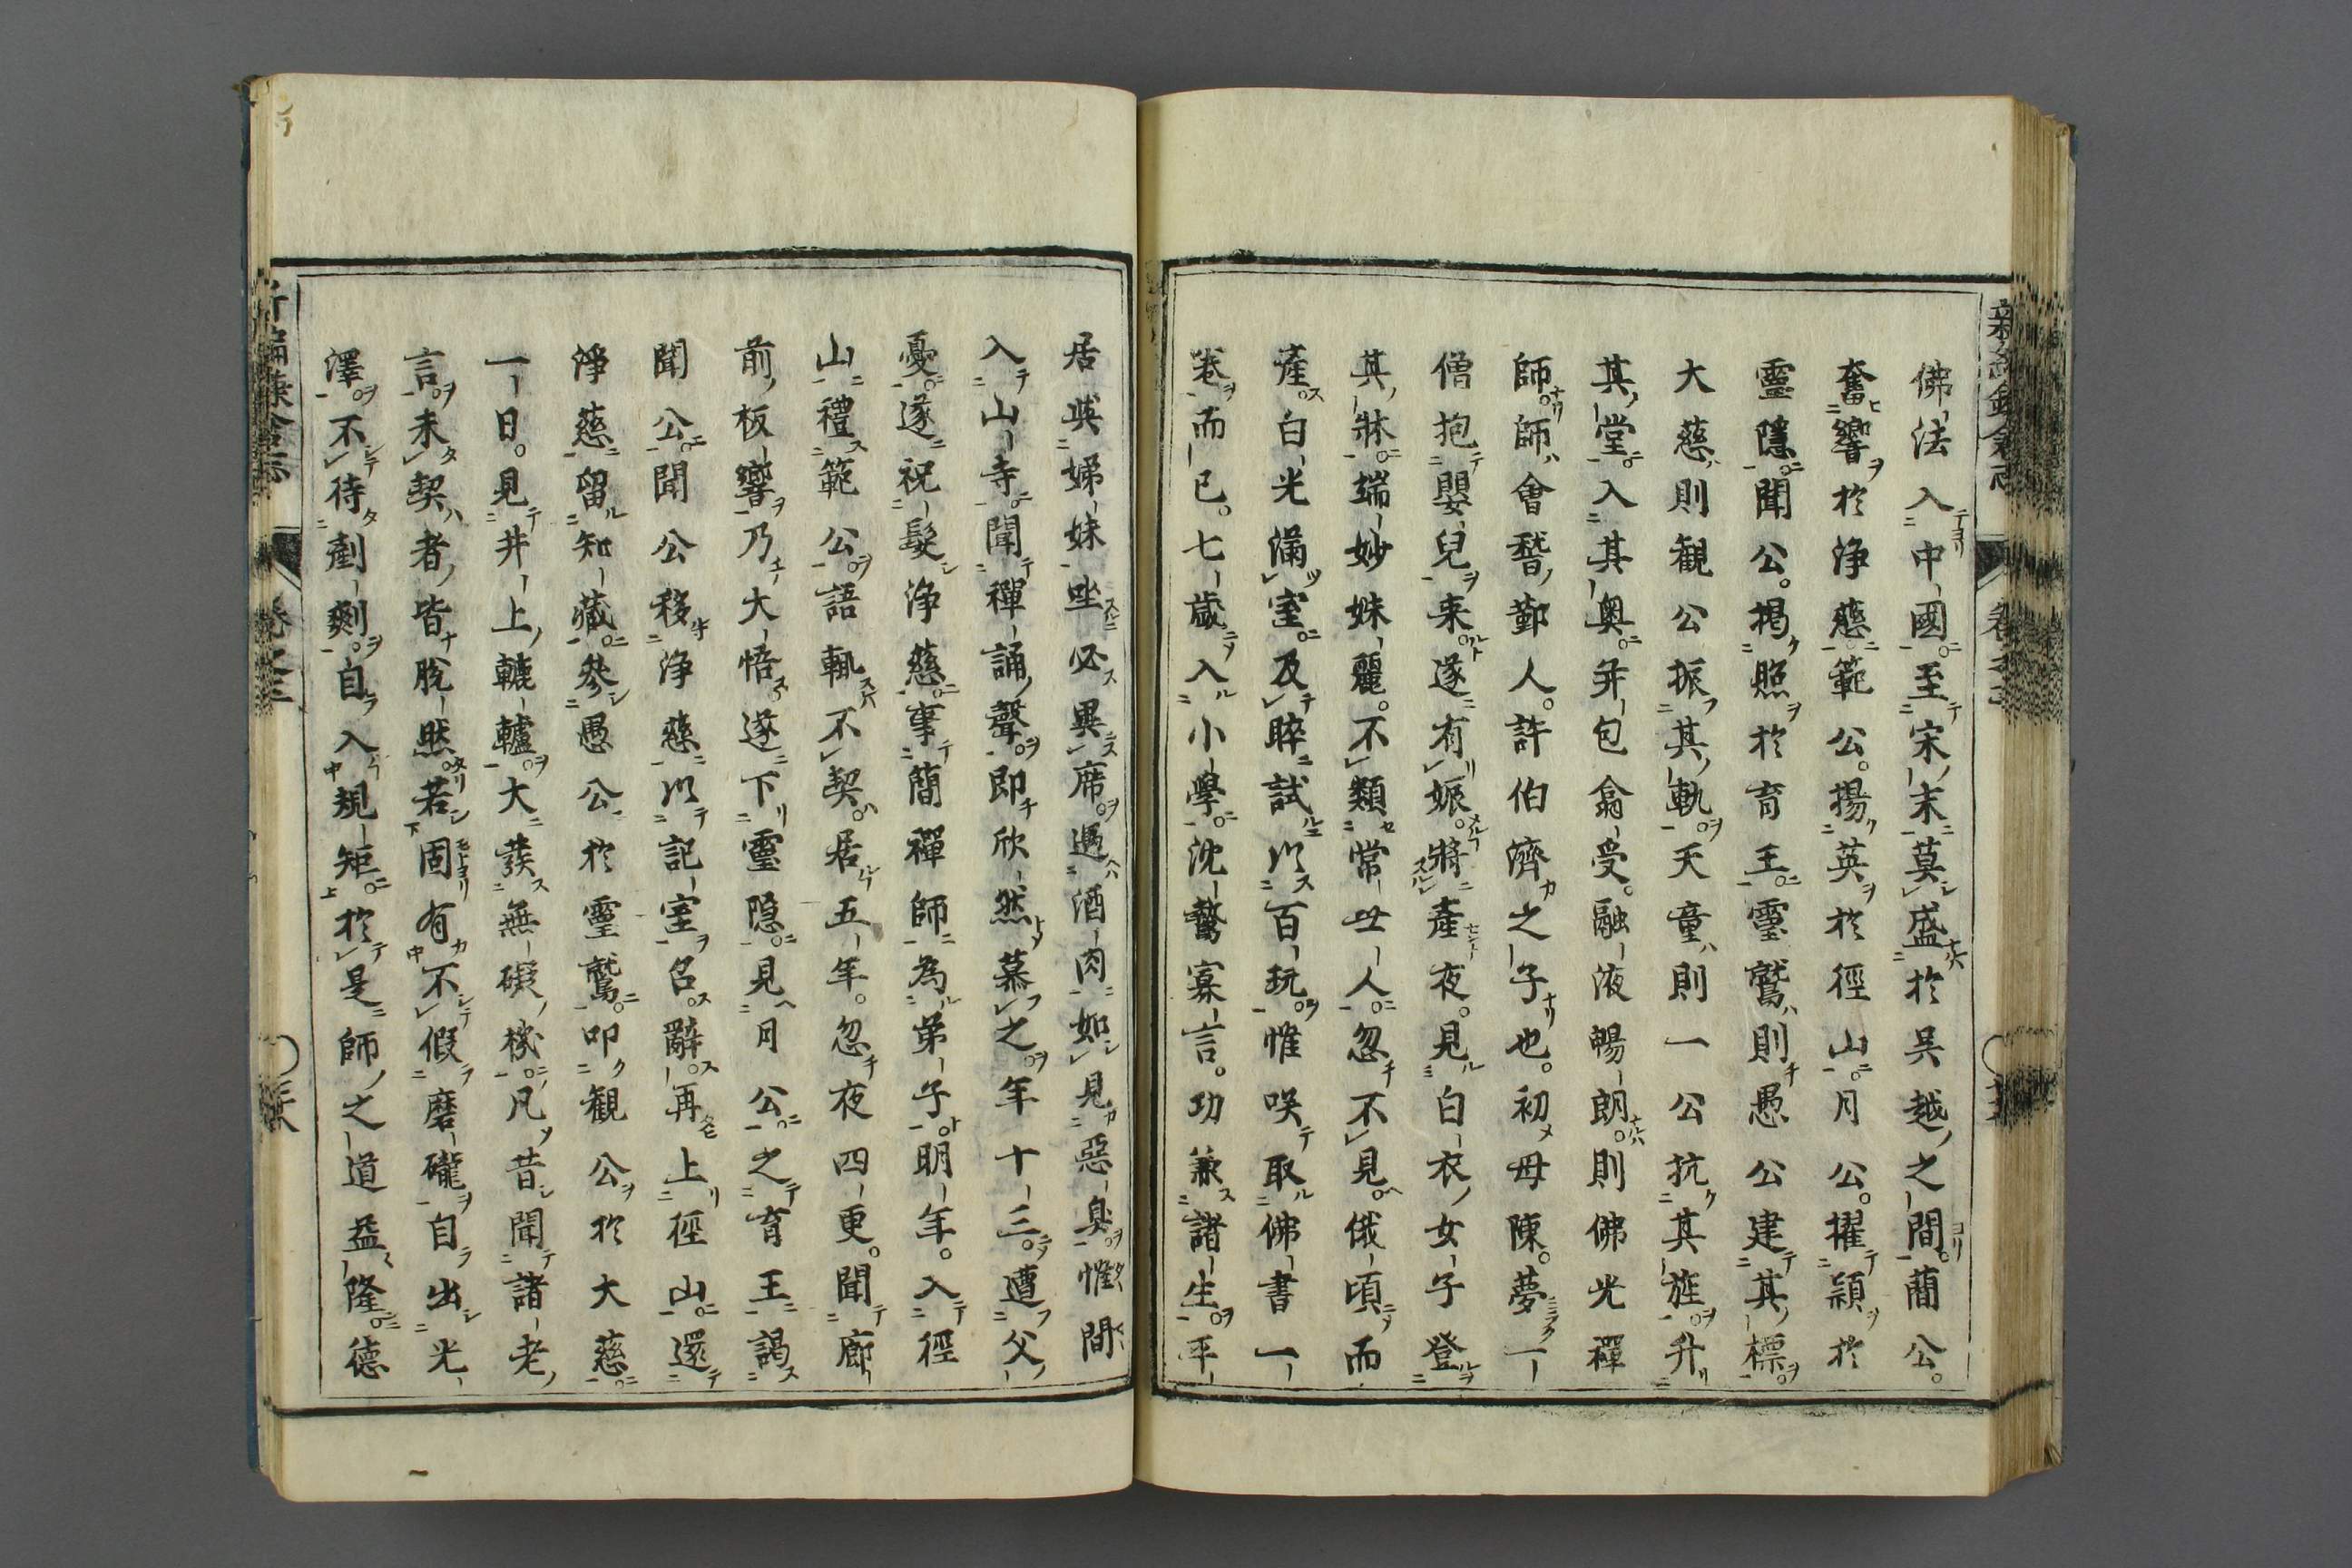 佛法入中國。至宋末莫盛於吳越之間。蕳公。
奮響於淨慈。範公。揚英於徑山。月公。擢穎於
靈隱。聞公。揭照於育王。靈鷲則愚公建其標。
大慈則觀公振其軌。天童則一公抗其旌。升
其堂。入其奧。并包翕受。融液暢朗。則佛光禪
師。師會稽鄞人。許伯濟之子也。初母陳。夢一
僧抱嬰兒来。遂有娠。將產夜。見白衣女子登
其牀。端妙姝麗。不類常世人。忽不見。俄頃而
產。白光滿室。及晬試以百玩。惟咲取佛書一
卷而已。七歲入小學。沈驁寡言。功兼諸生。平
居與娣妹坐必異席。遇酒肉如見惡臭。惟間
入山寺。聞禪誦聲。即欣然慕之。年十三。遭父
憂。遂祝髮淨慈。事蕳禪師為弟子。明年。入徑
山禮範公。語輒不契。居五年。忽夜四更。聞廊
前板響乃大悟。遂下靈隱。見月公。之育王謁
聞公。聞公移淨慈。以記室召。辭。再上徑山。還
淨慈留知藏。參愚公於靈鷲。叩觀公於大慈。
一日。見井上轆轤。大發無礙機。凡昔聞諸老
言。未契者。皆脫然。若固有不假磨礲。自出光
澤。不待剞劂。自入規矩。於是師之道益隆。德
卷之三